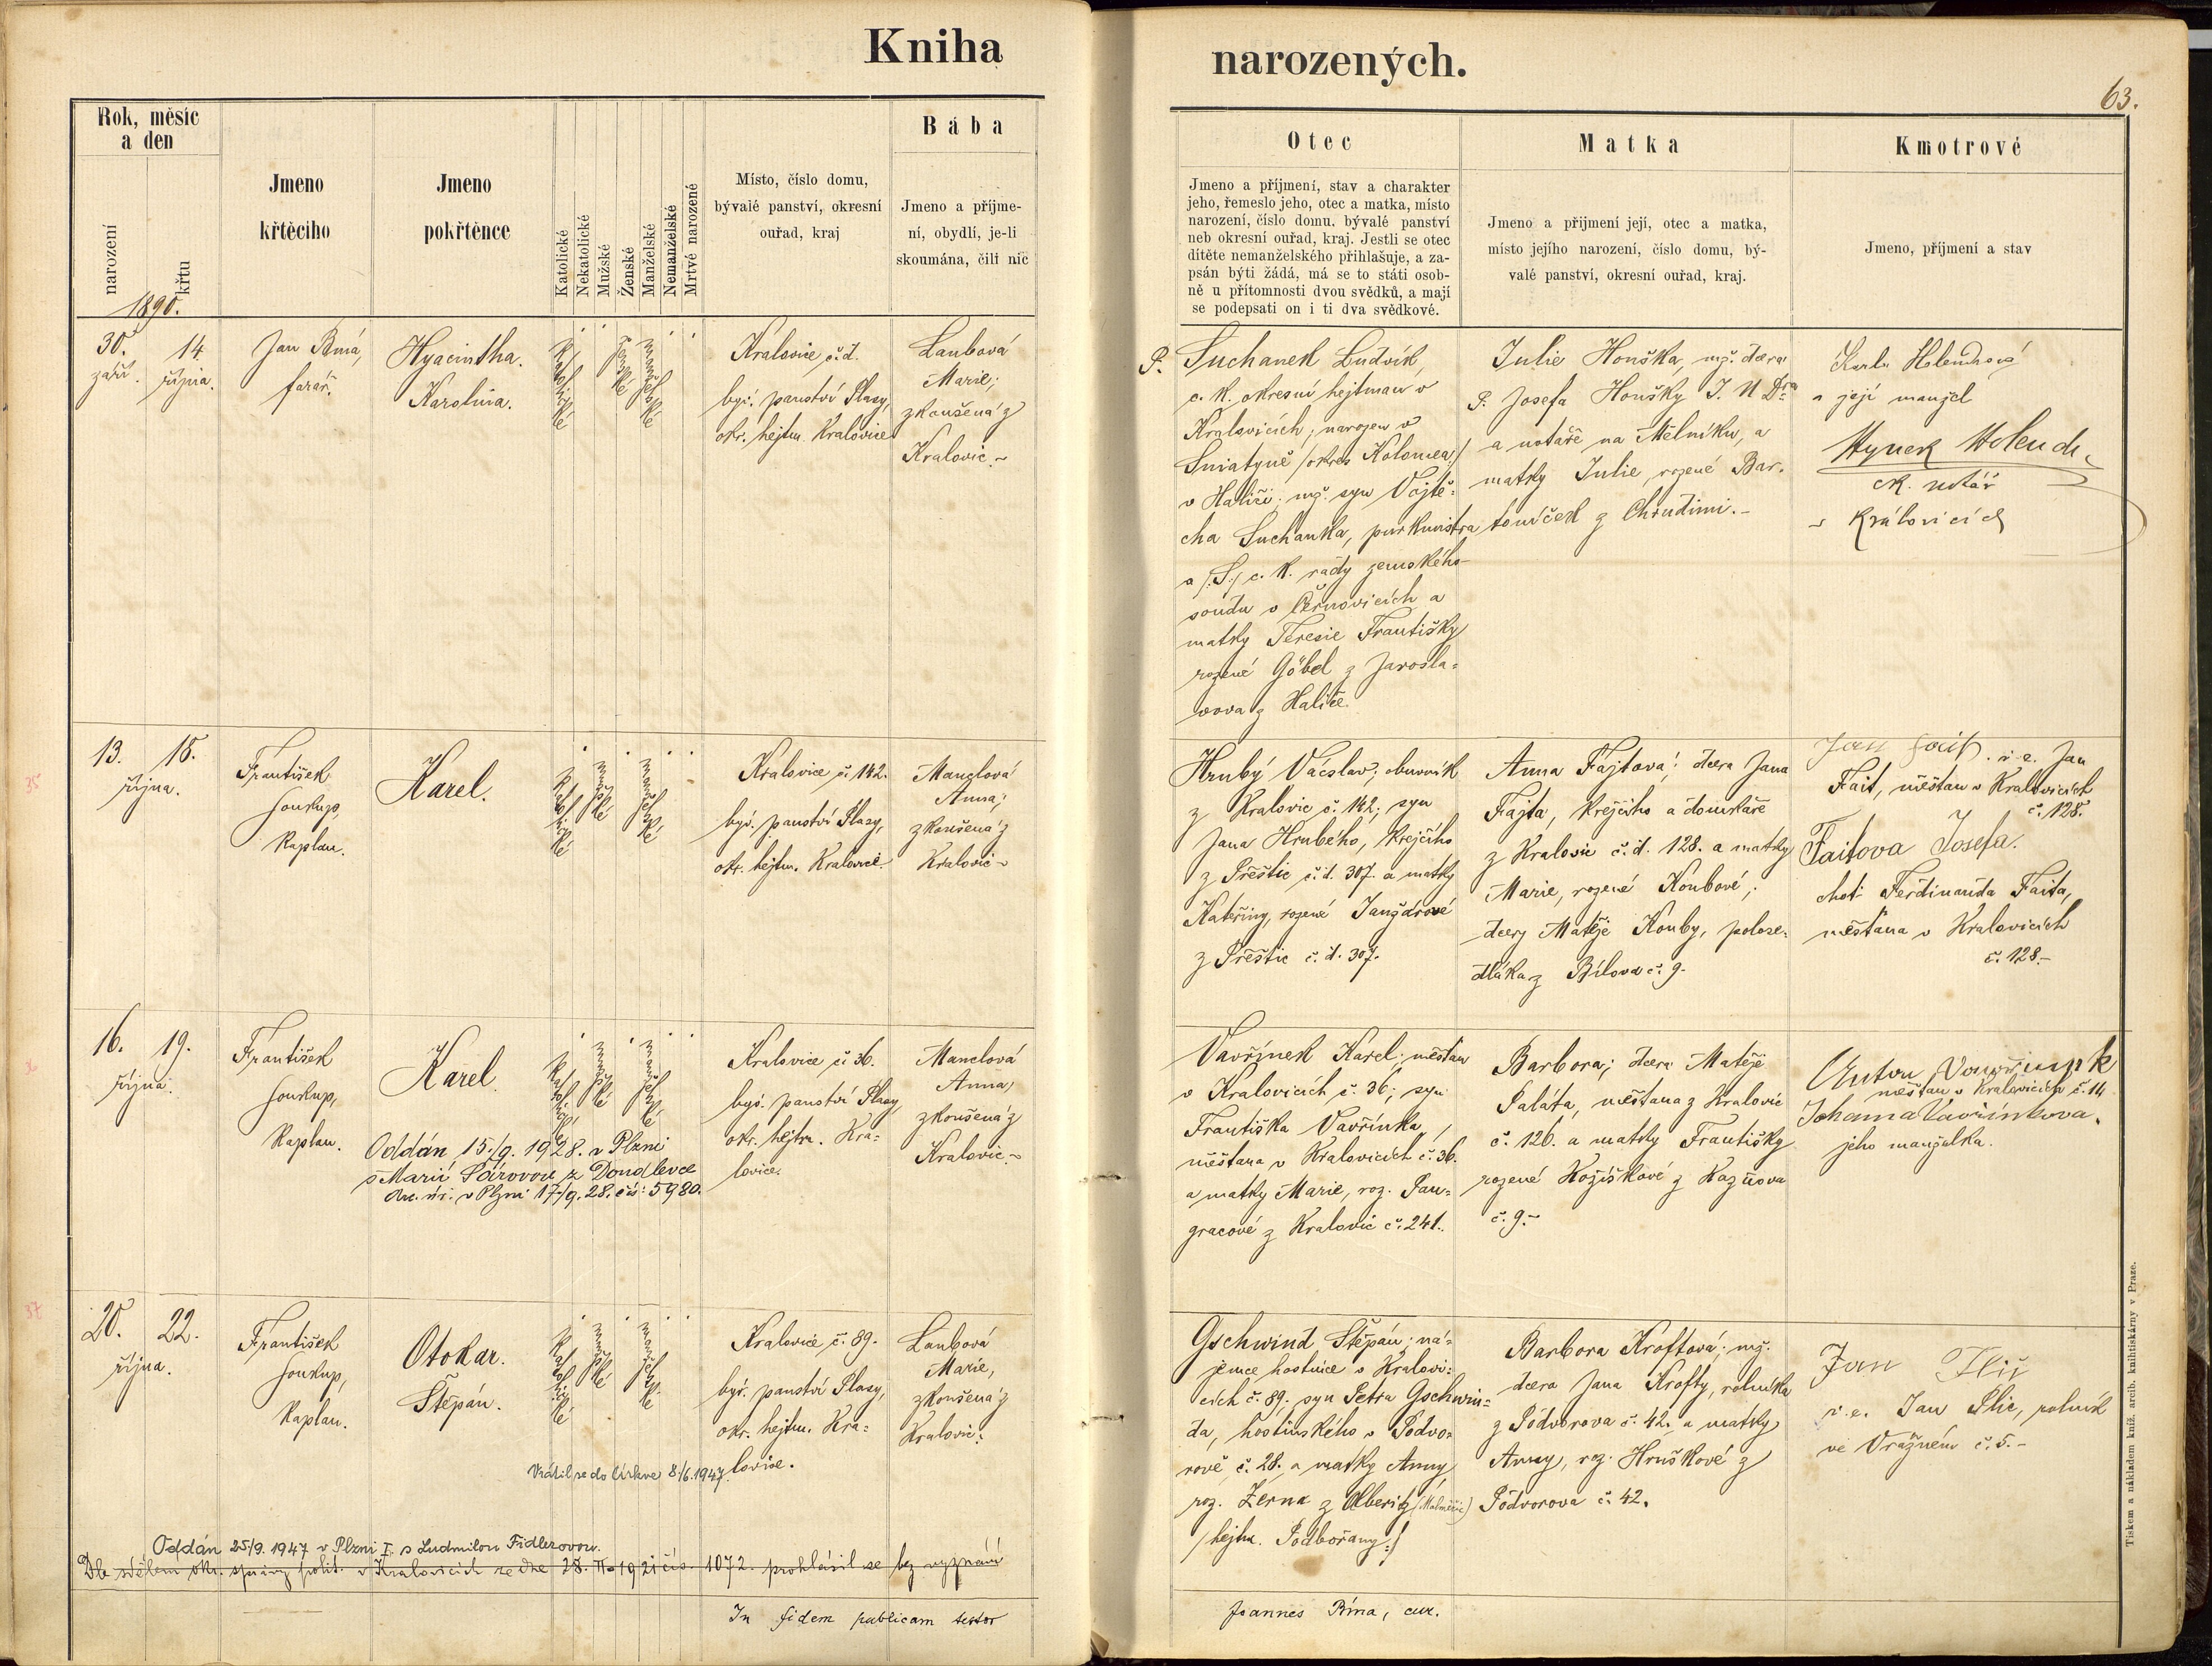 Kniha
narozených.
63.
Rok, měsíc
a den
narození
křtu
Jmeno
křtěcího
Jmeno
pokřtěnce
Katolické
Nekatolické
Mužské
Ženské
Manželské
Nemanželské
Mrtvé narozené
Místo, číslo domu,
bývalé panství, okresní
ouřad, kraj
Bába
Jmeno a příjme-
ní, obydlí, je-li
skoumána, čili nic
Otec
Jmeno a příjmení, stav a charakter
jeho, řemeslo jeho, otec a matka, místo
narození, číslo domu, bývalé panství
neb okresní ouřad, kraj. Jestli se otec
dítěte nemanželského přihlašuje, a za-
psán býti žádá, má se to státi osob-
ně u přítomnosti dvou svědků, a mají
se podepsati on i ti dva svědkové.
Matka
Jmeno a přijmení její, otec a matka,
místo jejího narození, číslo domu, bý-
valé panství, okresní ouřad, kraj.
Kmotrové
Jmeno, příjmení a stav
1890.
30.
září.
14
října.
Jan Bína,
farář.
Hyacintha.
Karolina.
katolické
ženské
manželské
Kralovice č. d.
býv. panství Plasy,
okr. hejtm. Kralovice
Laubová
Marie;
zkoušená z
Kralovic.
P. Suchanek Ludvík,
c. k. okresní hejtman v
Kralovicích; narozen v
Sniatyně /okres Kolomea/
v Haliči; mž. syn Vojtě-
cha Suchanka, purkmistra
a /S./ c. k. rady zemského
soudu v Černovicích a
matky Teresie Františky
rozené Göbel z Jarosla-
wova z Haliče.
Julie Houška, mž. dcera
P. Josefa Houšky J. U Dra
a notáře na Mělníku, a
matky Julie, rozené Bar-
toníček z Chrudimi.
a její manžel
Hynek
ck. notář
v Královicích
35
13.
18.
října.
František
Soukup,
kaplan.
Karel.
katolické
mužské
manželské
Kralovice č. 142.
býv. panství Plasy,
okr. hejtm. Kralovice
Manclová
Anna;
zkoušená z
Kralovic
Hrubý Václav; obuvník
z Kralovic č. 142; syn
Jana Hrubého, krejčího
z Přeštic č. d. 307. a matky
Kateřiny, rozené
z Přeštic č. d. 307.
Anna Fajtová; dcera Jana
Fajta, krejčího a domkáře
z Kralovic č. d. 128. a matky
Marie, rozené Koubové;
dcery Matěje Kouby, polose-
dláka z Bílova č. 9.
Jan Fait. v. e. Jan
Fait, měšťan v Kralovicích
č. 128.
Faitova Josefa.
choť Ferdinanda Faita,
měšťana v Kralovicích
č. 128.
16.
19.
října.
František
Soukup,
kaplan.
Karel.
katolické
mužské
manželské
Oddán 15./9. 1928. v Plzni
s Marií Párovou z Doudlevce
v Plzni 17/9. 28. čís: 5980.
Kralovice č. 36.
býv. panství Plasy,
okr. hejtm. Kra-
lovice.
Manclová
Anna,
zkoušená z
Kralovic.
Vavřínek Karel; měšťan
v Kralovicích č. 36; syn
Františka Vavřínka,
měšťana v Kralovicích č. 36.
a matky Marie, roz. Pan-
gracové z Kralovic č. 241.
Barbora; dcera Matěje
Paláta, měšťana z Kralovic
č. 126. a matky Františky
rozené Kožíškové z Kazňova
č. 9.
Anton Vavřinek
měšťan v Kralovicích č. 14
Johanna Vavřinkova.
jeho manželka.
37
20.
22.
října.
František
Soukup,
kaplan.
Otokar.
Štěpán.
katolické
mužské
manželské
Kralovice č. 89.
býv. panství Plasy,
okr. hejtm. Kra-
lovice.
Laubová
Marie,
zkoušená z
Kralovic.
Vrátil se do církve 8./6. 1947.
Gschwind Štěpán; ná-
jemce hostince v Kralovi-
cích č. 89. syn Petra Gschwin-
da, hostinského v Podvo-
rově č. 28. a matky Anny
roz. Zerna z Alberitz (Malměřic)
/hejtm. Podbořany:/
Barbora Kroftová; mž.
dcera Jana Krofty, rolníka
z Podvorova č. 42. a matky
Anny, roz. Hruškové z
Podvorova č. 42.
Jan
v. e. Jan, rolník
ve Vrážném č. 5.
Oddán 25/9. 1947 v Plzni I. s Ludmilou Fidlerovou.
Dle sdělení okr. správy polit. v Kralovicích ze dne 28. II. 1921 čís. 1072. prohlásil se bez vyznání
In fidem publicam testor
Joannes Bína, cur.
Tiskem a nákladem kníž. arcib. knihtiskárny v Praze.